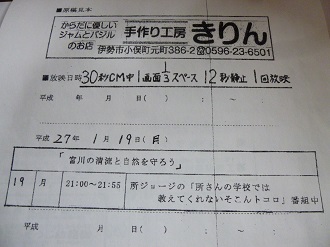 ■原稿見本
からだに優しい
ジャムとバジル
のお店
手作り工房 きりん
伊勢市小俣町元町386-2 ☎0596-23-6501
■放映日時 30秒CM中1画面1/3スペース 12秒静止1回放映
平成 年 月 日( ) : ~ :
平成 27年 1月 19日(月)
「宮川の清流と自然を守ろう」
19 月 21:00~21:55 所ジョージの「所さんの学校では
教えてくれないそこんトコロ」番組中
平成 月 日( )